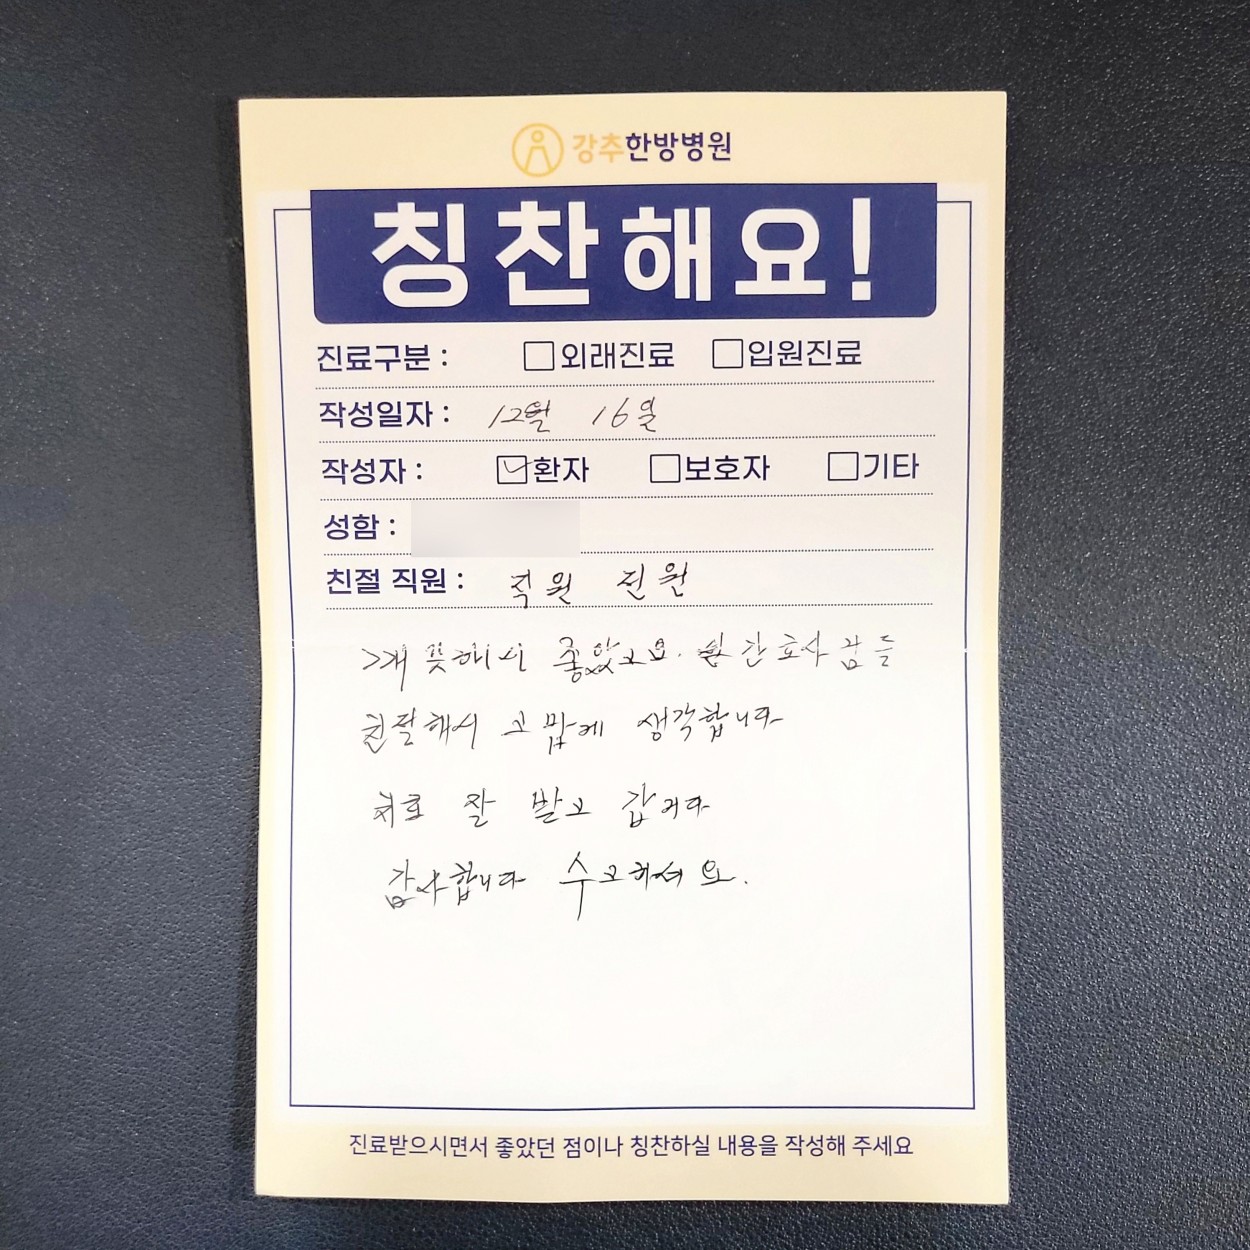 강추한방병원
칭찬해요!
진료구분 : 외래진료 입원진료
작성일자 : 12월 16일
작성자 : 환자 보호자 기타
성함 :
친절 직원 : 직원 전원
깨끗해서 좋았고요. 간호사님들
친절해서 고맙게 생각합니다
치료 잘 받고 갑니다
감사합니다 수고하셔요.
진료받으시면서 좋았던 점이나 칭찬하실 내용을 작성해 주세요